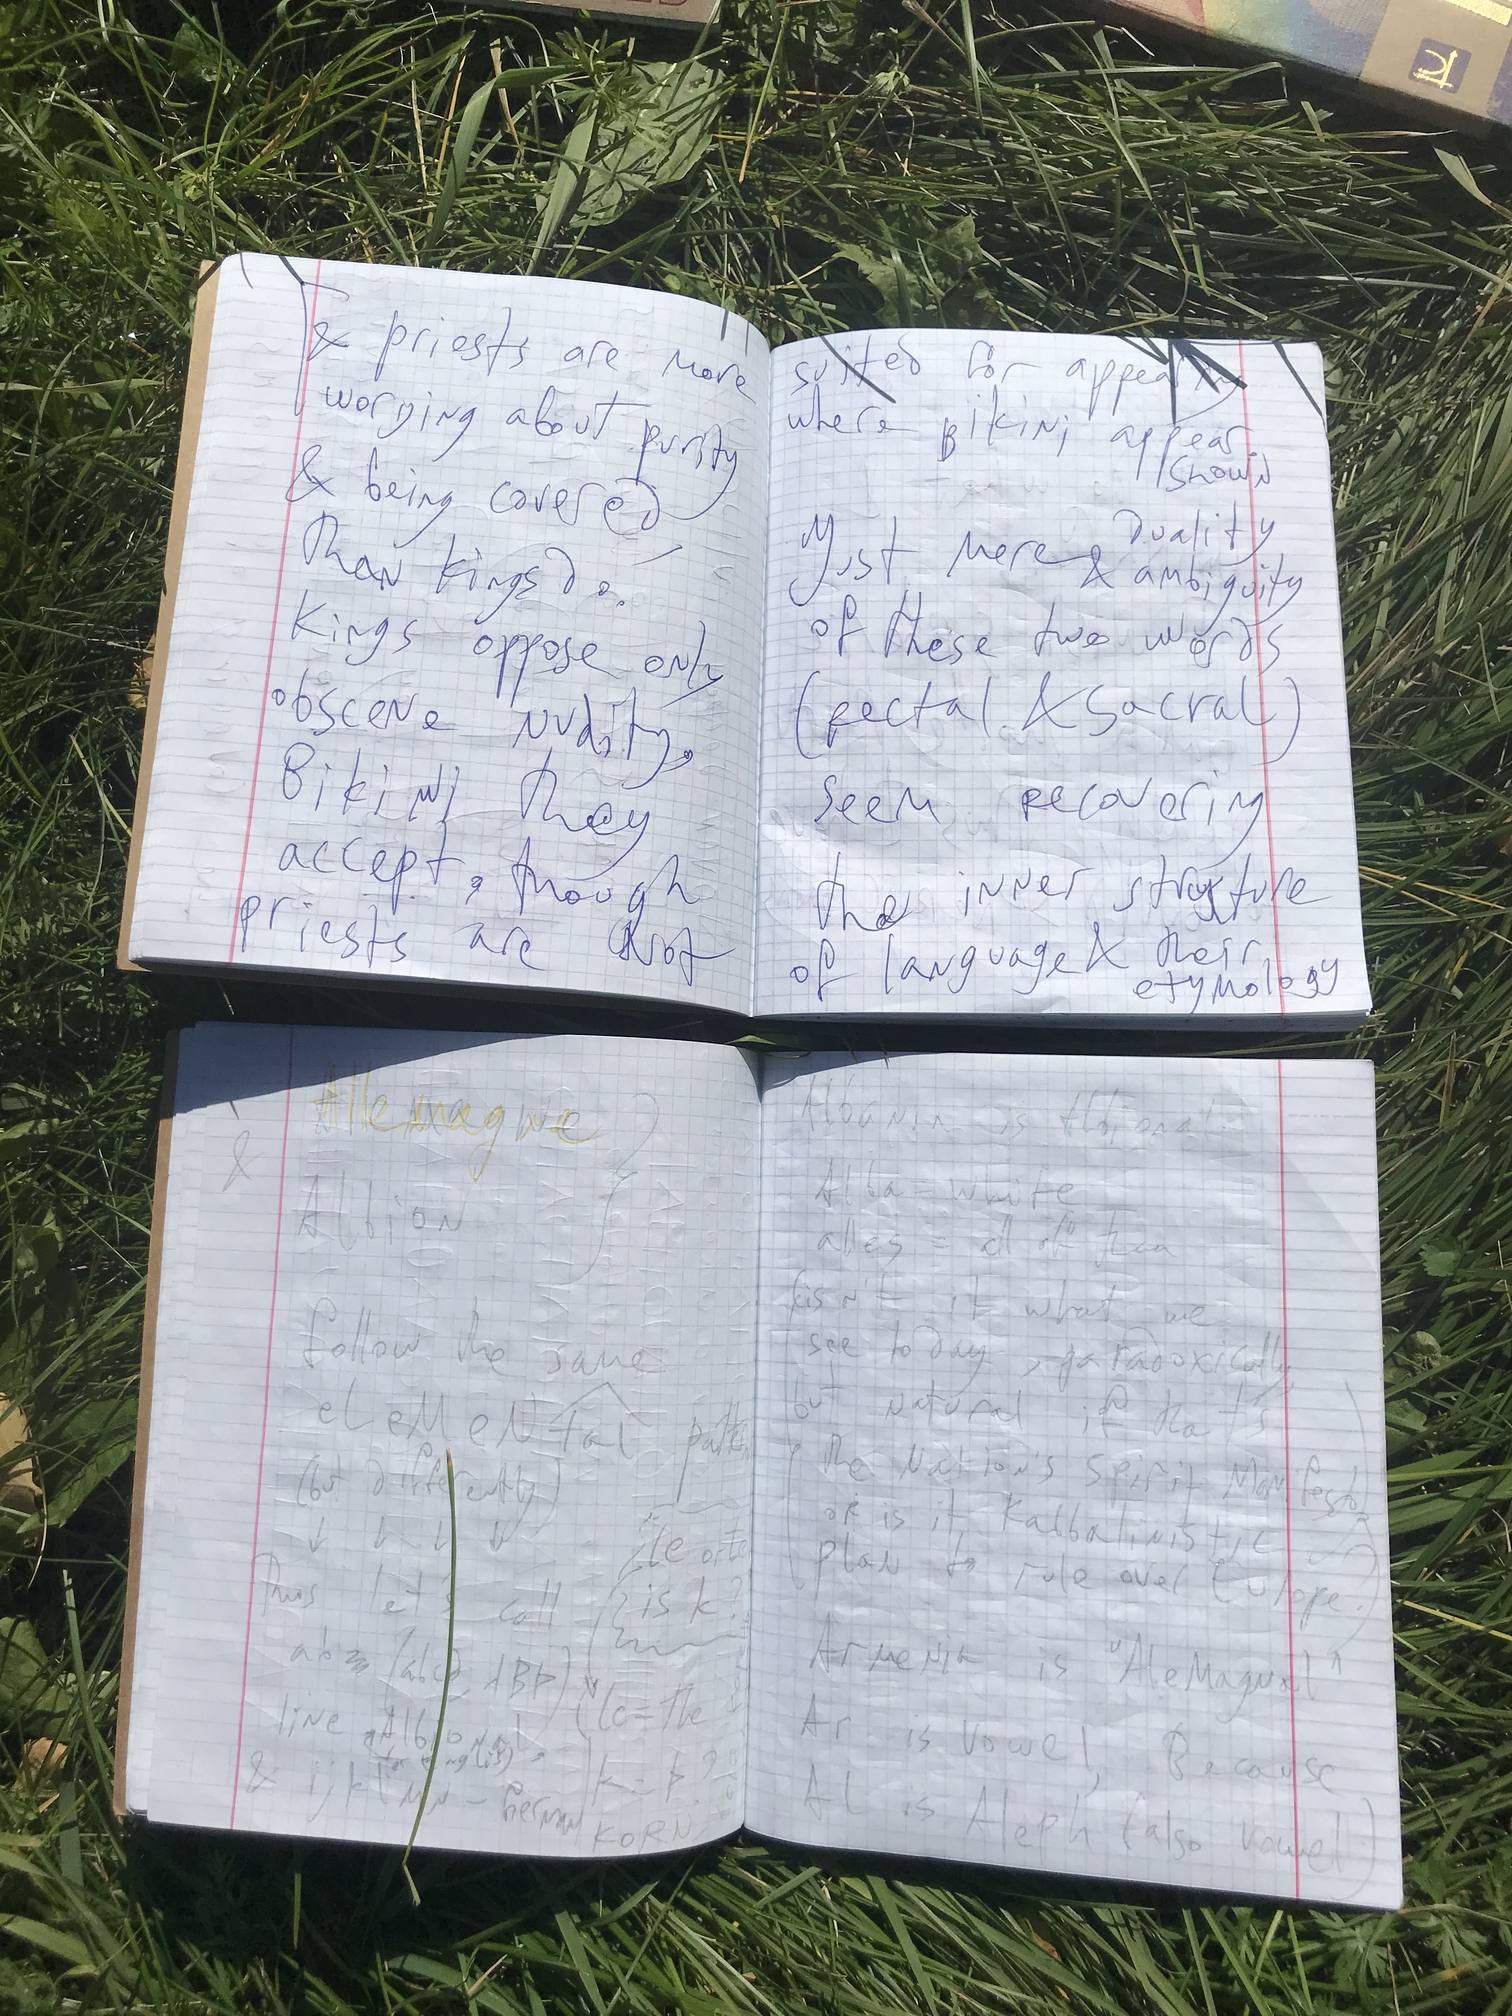 & priests are more
worrying about purity
& being covered
than kings do.
Kings oppose only
obscene nudity,
Bikini they
accept, though
priests are not
suited for appearing
where Bikini appear
shown
Just mere duality
& ambiguity
of these two words
(rectal & sacral)
seem recovering
the inner structure
of language & their
etymology
Allemagne
&
Albion
follow the same
eLeMeNtal path
(but differently)
↓ ↓ ↓ ↓
Thus let's call
is k?
line Albional
& ijklmn - German
k = t?
KORN
is Albional
Alba = white
alles = all of
isn't it what we
see today, paradoxically,
but natural if that's
the Nation's Spirit
or is it
plan to rule over Europe?
Armenia is "AleMagnal"
Ar is vowel, Because
Al is Aleph (also vowel)